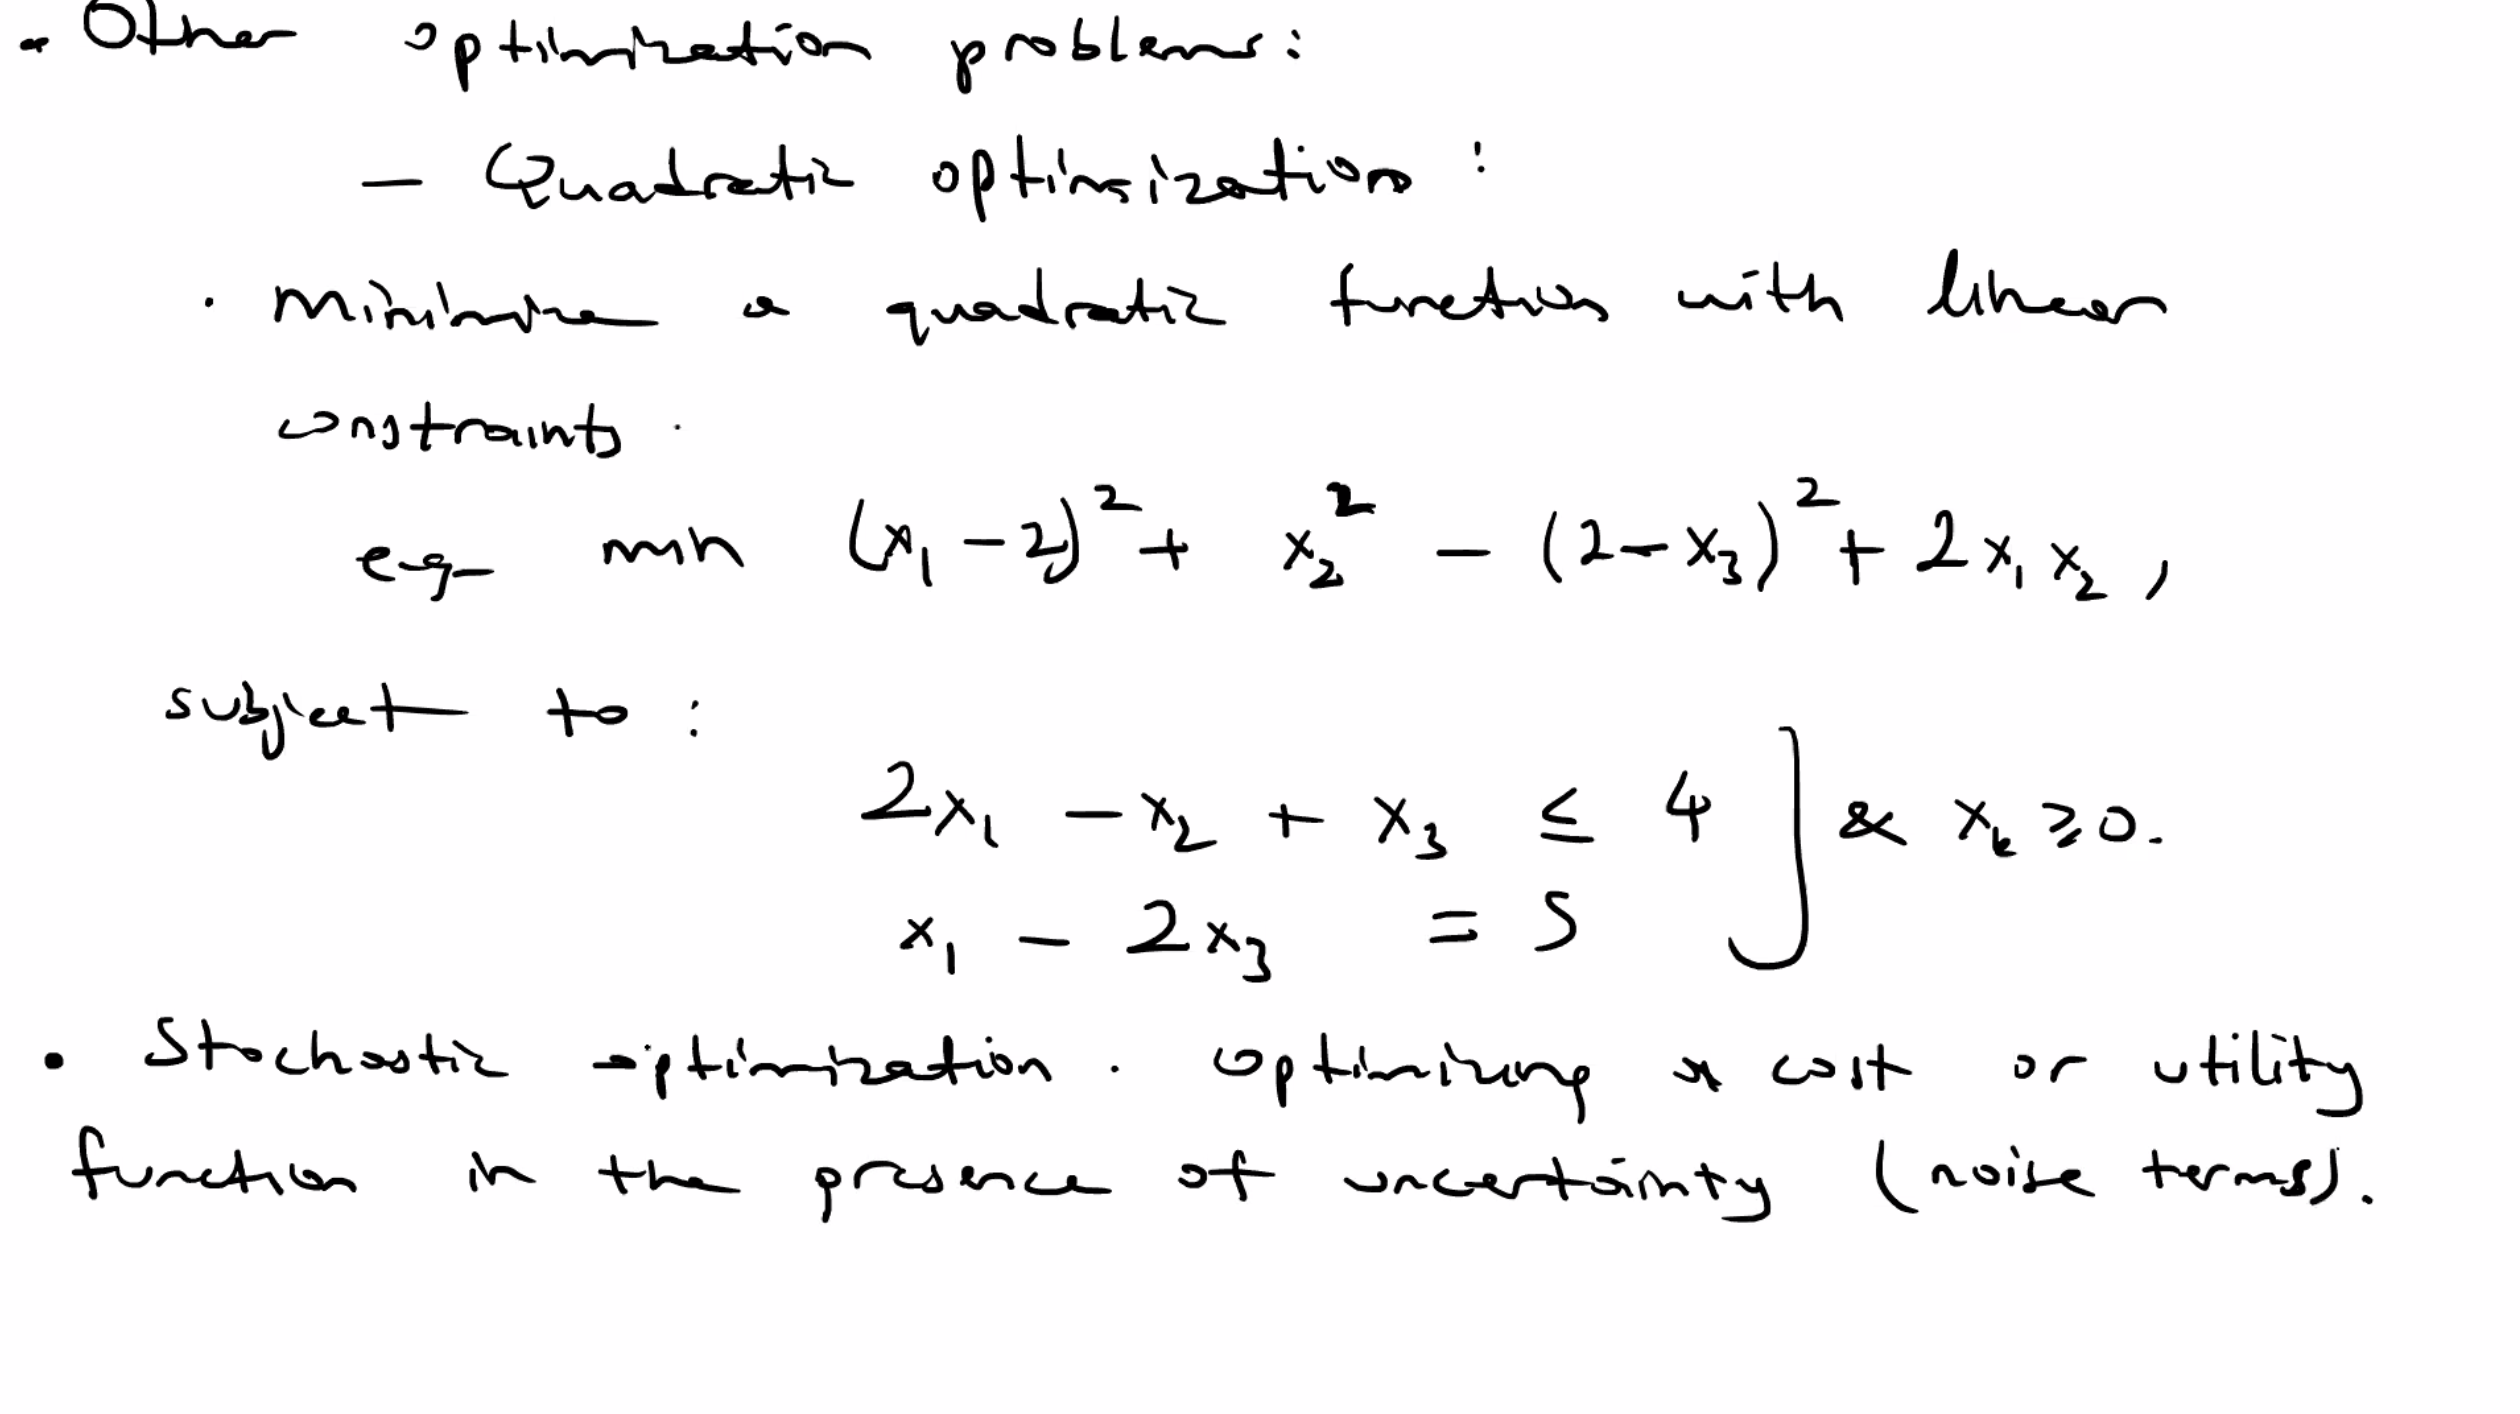 • Other optimization problems:
— Quadratic optimization:
• Minimize a quadratic function with linear
constraints.
e.g. min (x₁ − 2)² + x₂² − (2 − x₃)² + 2x₁x₂,
subject to:
2x₁ − x₂ + x₃ ≤ 4 ] & xₖ ≥ 0.
x₁ − 2x₃ = 5
• Stochastic optimization. optimizing a cost or utility
function in the presence of uncertainty (noise terms).